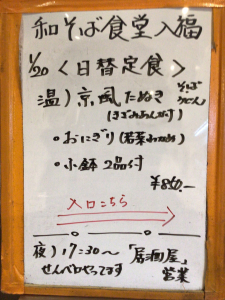 和そば食堂入福
1/20 <日替定食>
温) 京風たぬき そば うどん
(きざみあんかけ)
・おにぎり(若菜わかめ)
・小鉢 2品付
¥860.-
入口こちら
夜) 17:30〜 「居酒屋」営業
せんべろやってます